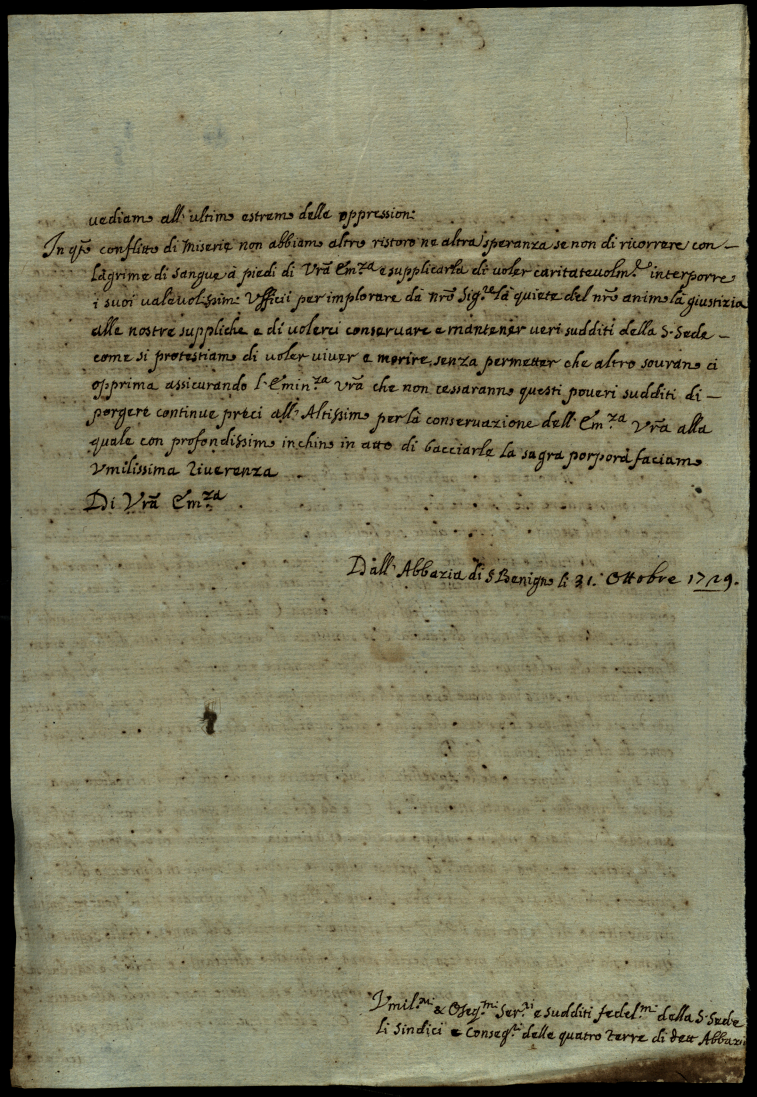 vediamo all'ultimo estremo delle oppressioni:
In qto conflitto di miserie non abbiamo altro ristoro ne altra speranza se non di ricorrere con –
làgrime di sangue à piedi di Vrã Em.za e supplicarla di voler caritatevolm.e interporre
i suoi valevolissimi Vfficii per implorare dà nrõ Sig.re là quiete del nrõ animo là giustizia
alle nostre suppliche e di volerci conservare e mantener veri sudditi della S. Sede –
come si protestiamo di voler viver e morire senza permetter che altro sourano ci
opprima assicurando l'Emin.za Vrã che non cessaranno questi poveri sudditi di –
porgere continue preci all'Altissimo per là conservazione dell'Em.za Vrã alla
quale con profondissimo inchino in atto di bacciarle la sagra porporà faciamo
Vmilissima Riverenza
Di Vrã Em.za
Dall'Abbazia di S. Benigno li 31. Ottobre 1729.
Vmil.mi & Oseq.mi Ser.ri e sudditi fedel.mi della S. Sede
li Sindici e Conseg.ri delle quatro terre di dett Abbazi